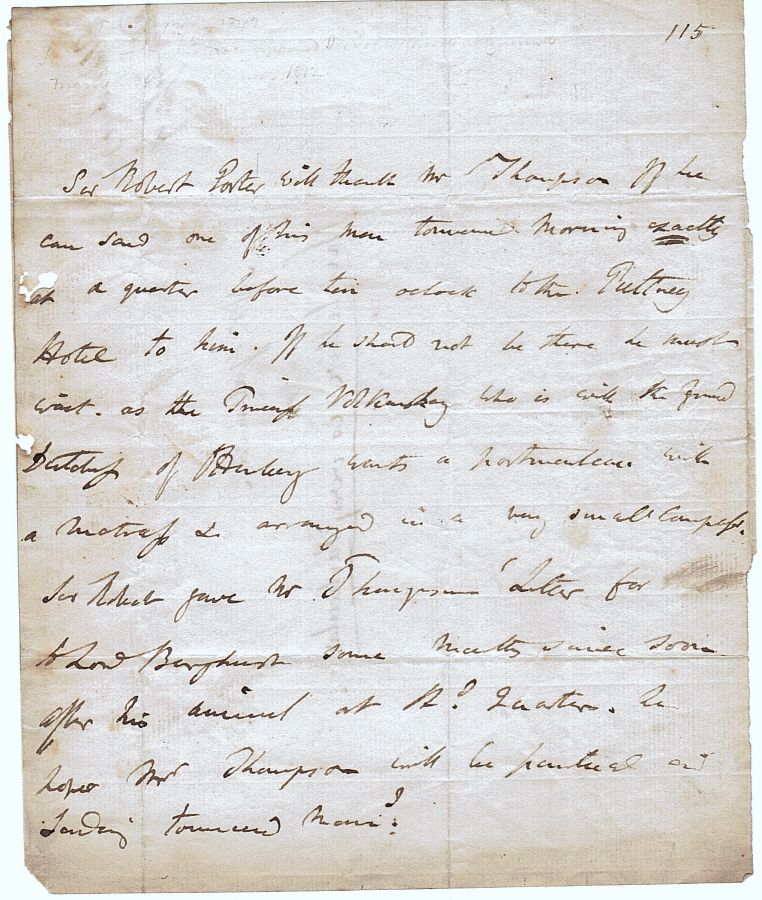 115
1812
Sir Robert Porter will thank Mr Thompson If he
can send one of his men tomorrow Morning exactly
at a quarter before ten oclock to the Pultney
Hotel to him. If he should not be there he must
wait. as the Princess Volkonsky who is with the Grand
Dutchess of wants a portmanteau with
a Matrass &c arranged in a very small Compass.
Sir Robert gave Mr Thompsons Letter for
to Lord Burghursh some Months since soon
after his arrival at Hd Quarters. he
hopes Mr Thompson will be punctual and
Sending tomorrow